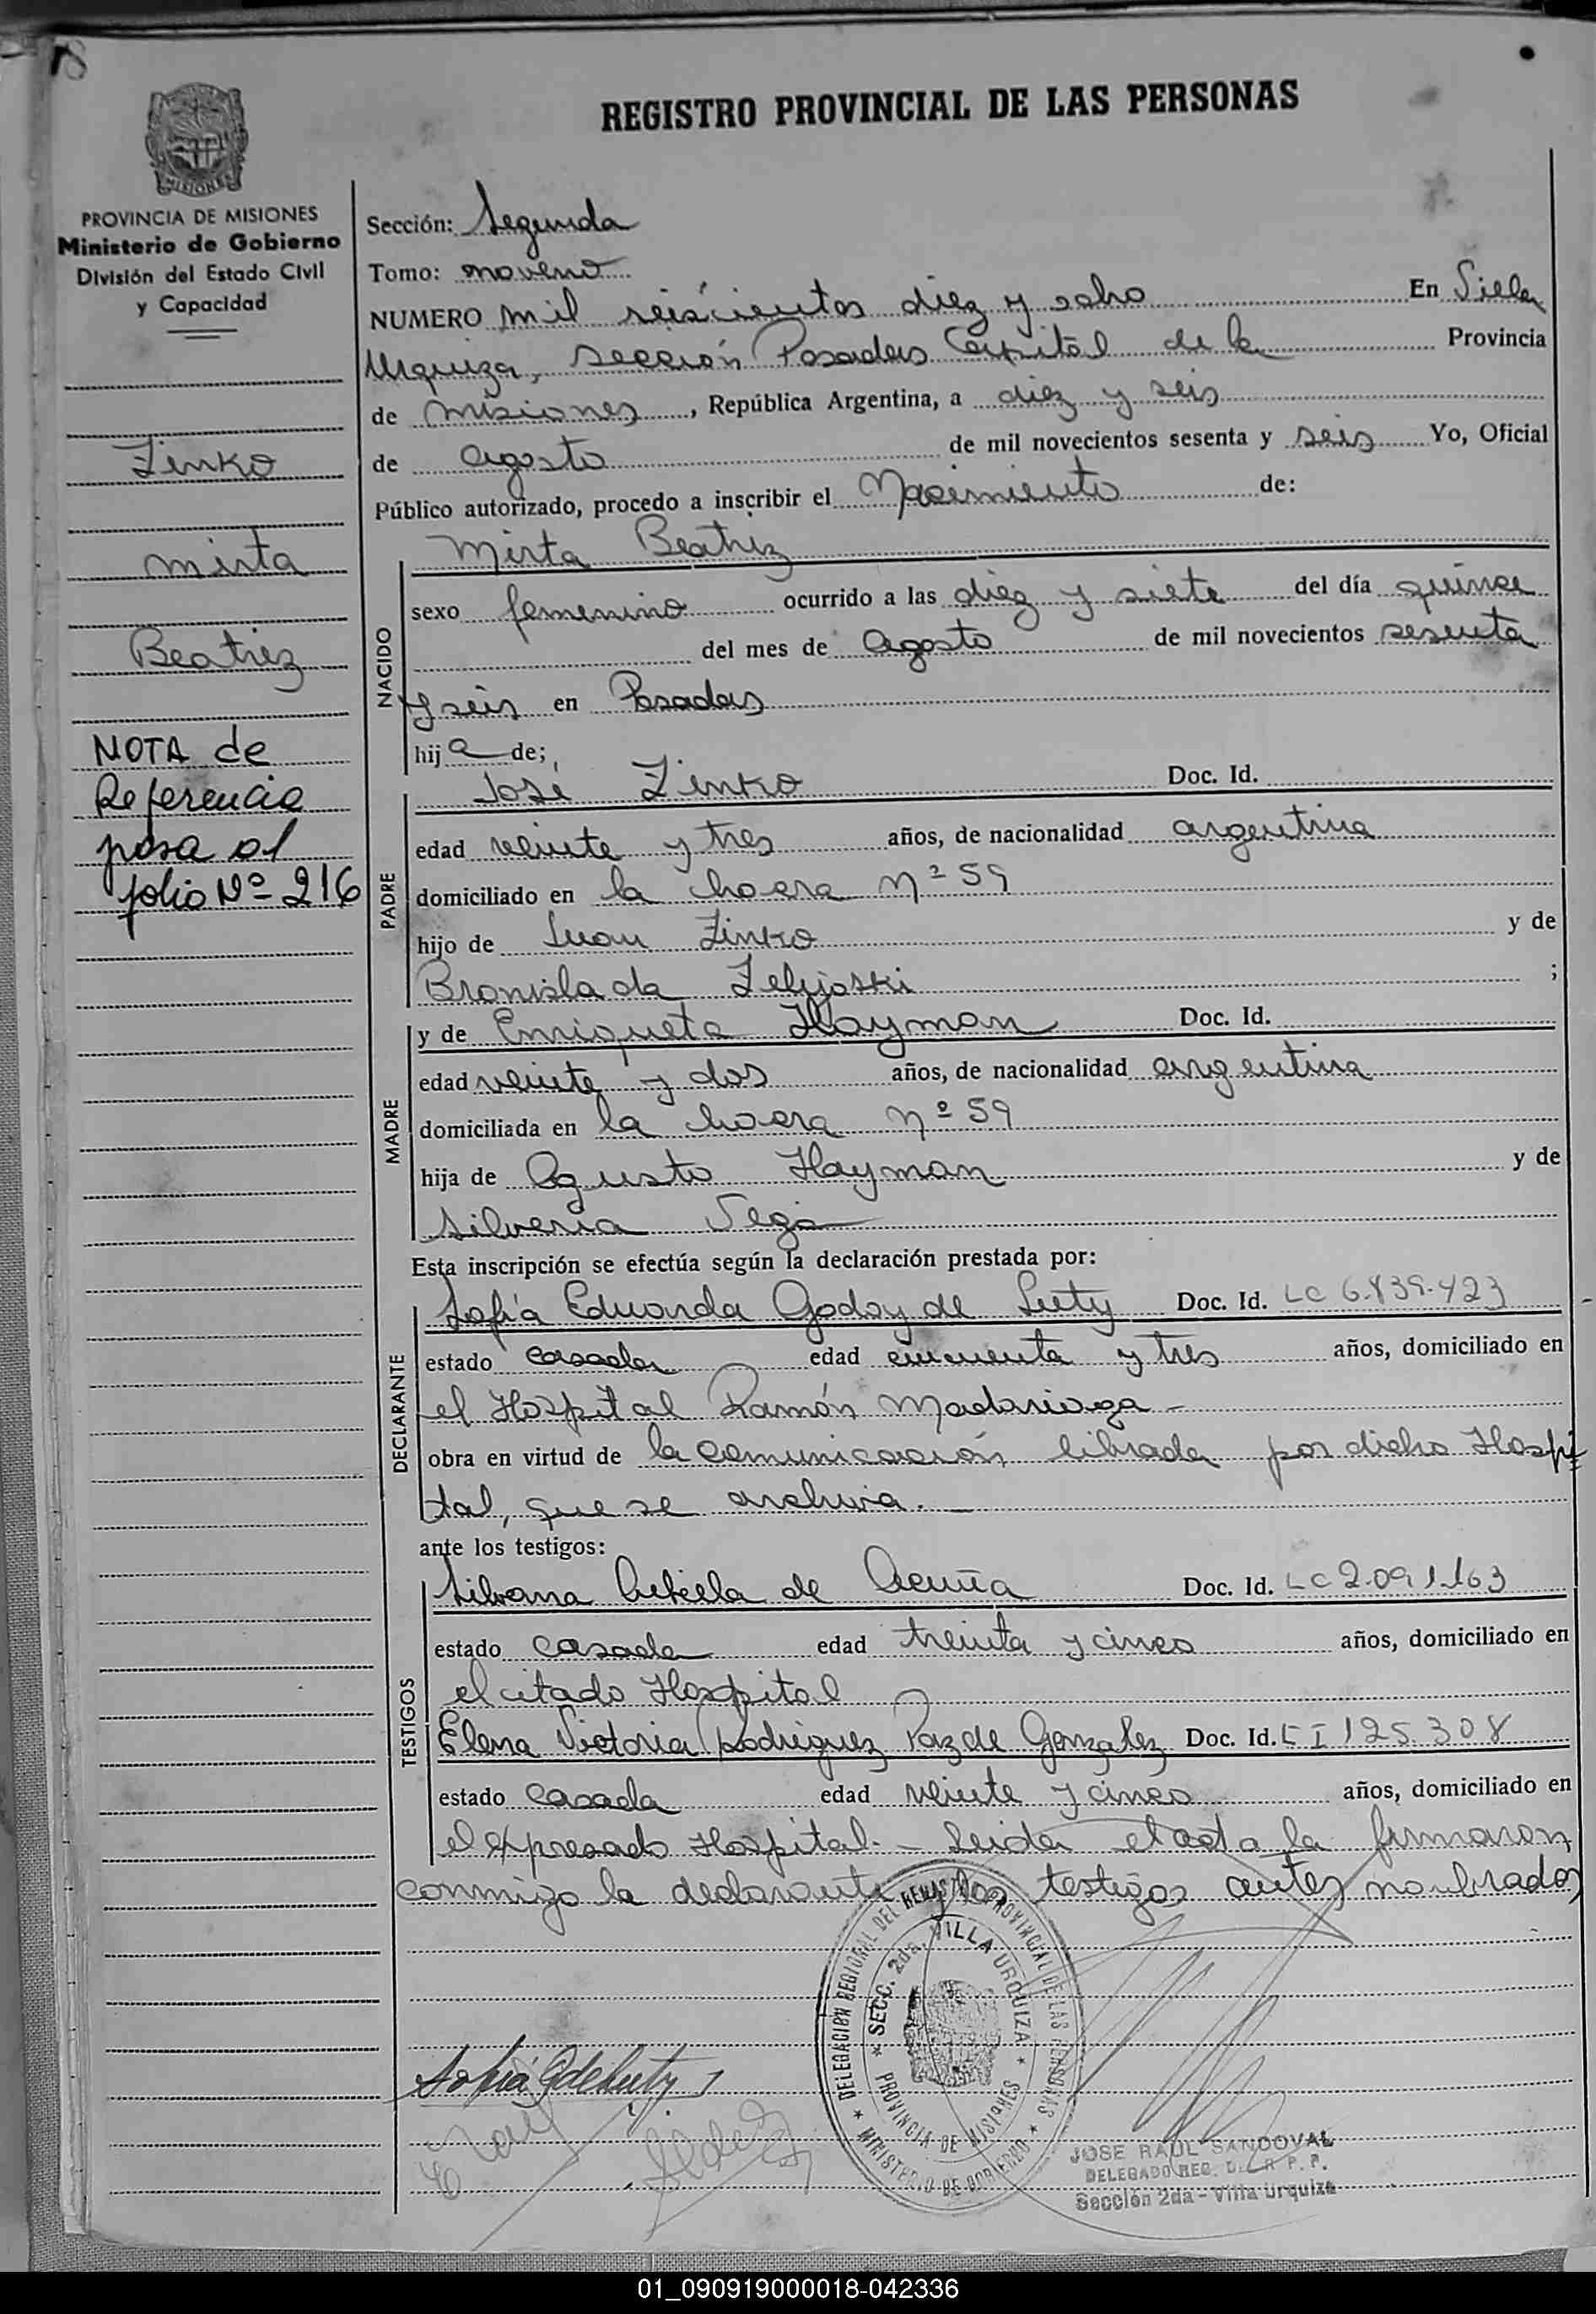 18
REGISTRO PROVINCIAL DE LAS PERSONAS
MISIONES
PROVINCIA DE MISIONES
Ministerio de Gobierno
División del Estado Civil
y Capacidad
Zinko
Mirta
Beatriz
NOTA de
Referencia
pasa al
folio Nº 216
Sección: Segunda
Tomo: noveno
NUMERO mil seiscientos diez y ocho En Villa
Urquiza, sección Posadas Capital de la Provincia
de Misiones, República Argentina, a diez y seis
de agosto de mil novecientos sesenta y seis Yo, Oficial
Público autorizado, procedo a inscribir el Nacimiento de:
NACIDO
Mirta Beatriz
sexo femenino ocurrido a las diez y siete del día quince
del mes de agosto de mil novecientos sesenta
y seis en Posadas
hija de;
PADRE
José Zinko Doc. Id.
edad veinte y tres años, de nacionalidad argentina
domiciliado en la chacra nº 59
hijo de Juan Zinko y de
Bronislada ;
MADRE
y de Enriqueta Hayman Doc. Id.
edad veinte y dos años, de nacionalidad argentina
domiciliada en la chacra nº 59
hija de Agusto Hayman y de
Silveria Vega
Esta inscripción se efectúa según la declaración prestada por:
DECLARANTE
Sofía Eduarda Godoy de Doc. Id. LC 6.839.423
estado casada edad cincuenta y tres años, domiciliado en
el Hospital Ramón Madariaga -
obra en virtud de la comunicación librada por dicho Hospi
tal, que se archiva.
ante los testigos:
TESTIGOS
Silvana de Acuña Doc. Id. LC 2.091.163
estado casada edad treinta y cinco años, domiciliado en
el citado Hospital
Elena Victoria Rodriguez Paz de Gonzalez Doc. Id. CI 125.308
estado casada edad veinte y cinco años, domiciliado en
el expresado Hospital. - Leida el acta la firmaron
conmigo la declarante y los testigos antes nombrados
DELEGACION REGIONAL DEL REGISTRO PROVINCIAL DE LAS PERSONAS
SECC. 2da. VILLA URQUIZA
PROVINCIA DE MISIONES
MINISTERIO DE GOBIERNO
JOSE RAUL SANDOVAL
DELEGADO REG. D. L. R. P. P.
Sección 2da - Villa Urquiza
01_090919000018-042336